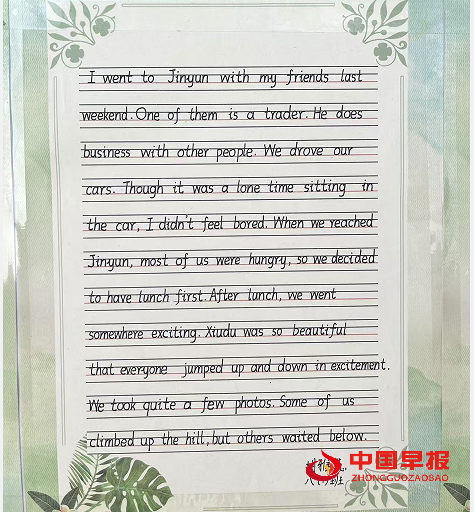 I went to Jinyun with my friends last
weekend. One of them is a trader. He does
business with other people. We drove our
cars. Though it was a lone time sitting in
the car, I didn't feel bored. When we reached
Jinyun, most of us were hungry, so we decided
to have lunch first. After lunch, we went
somewhere exciting. Xiudu was so beautiful
that everyone jumped up and down in excitement.
We took quite a few photos. Some of us
climbed up the hill, but others waited below.
中国早报
ZHONGGUOZAOBAO